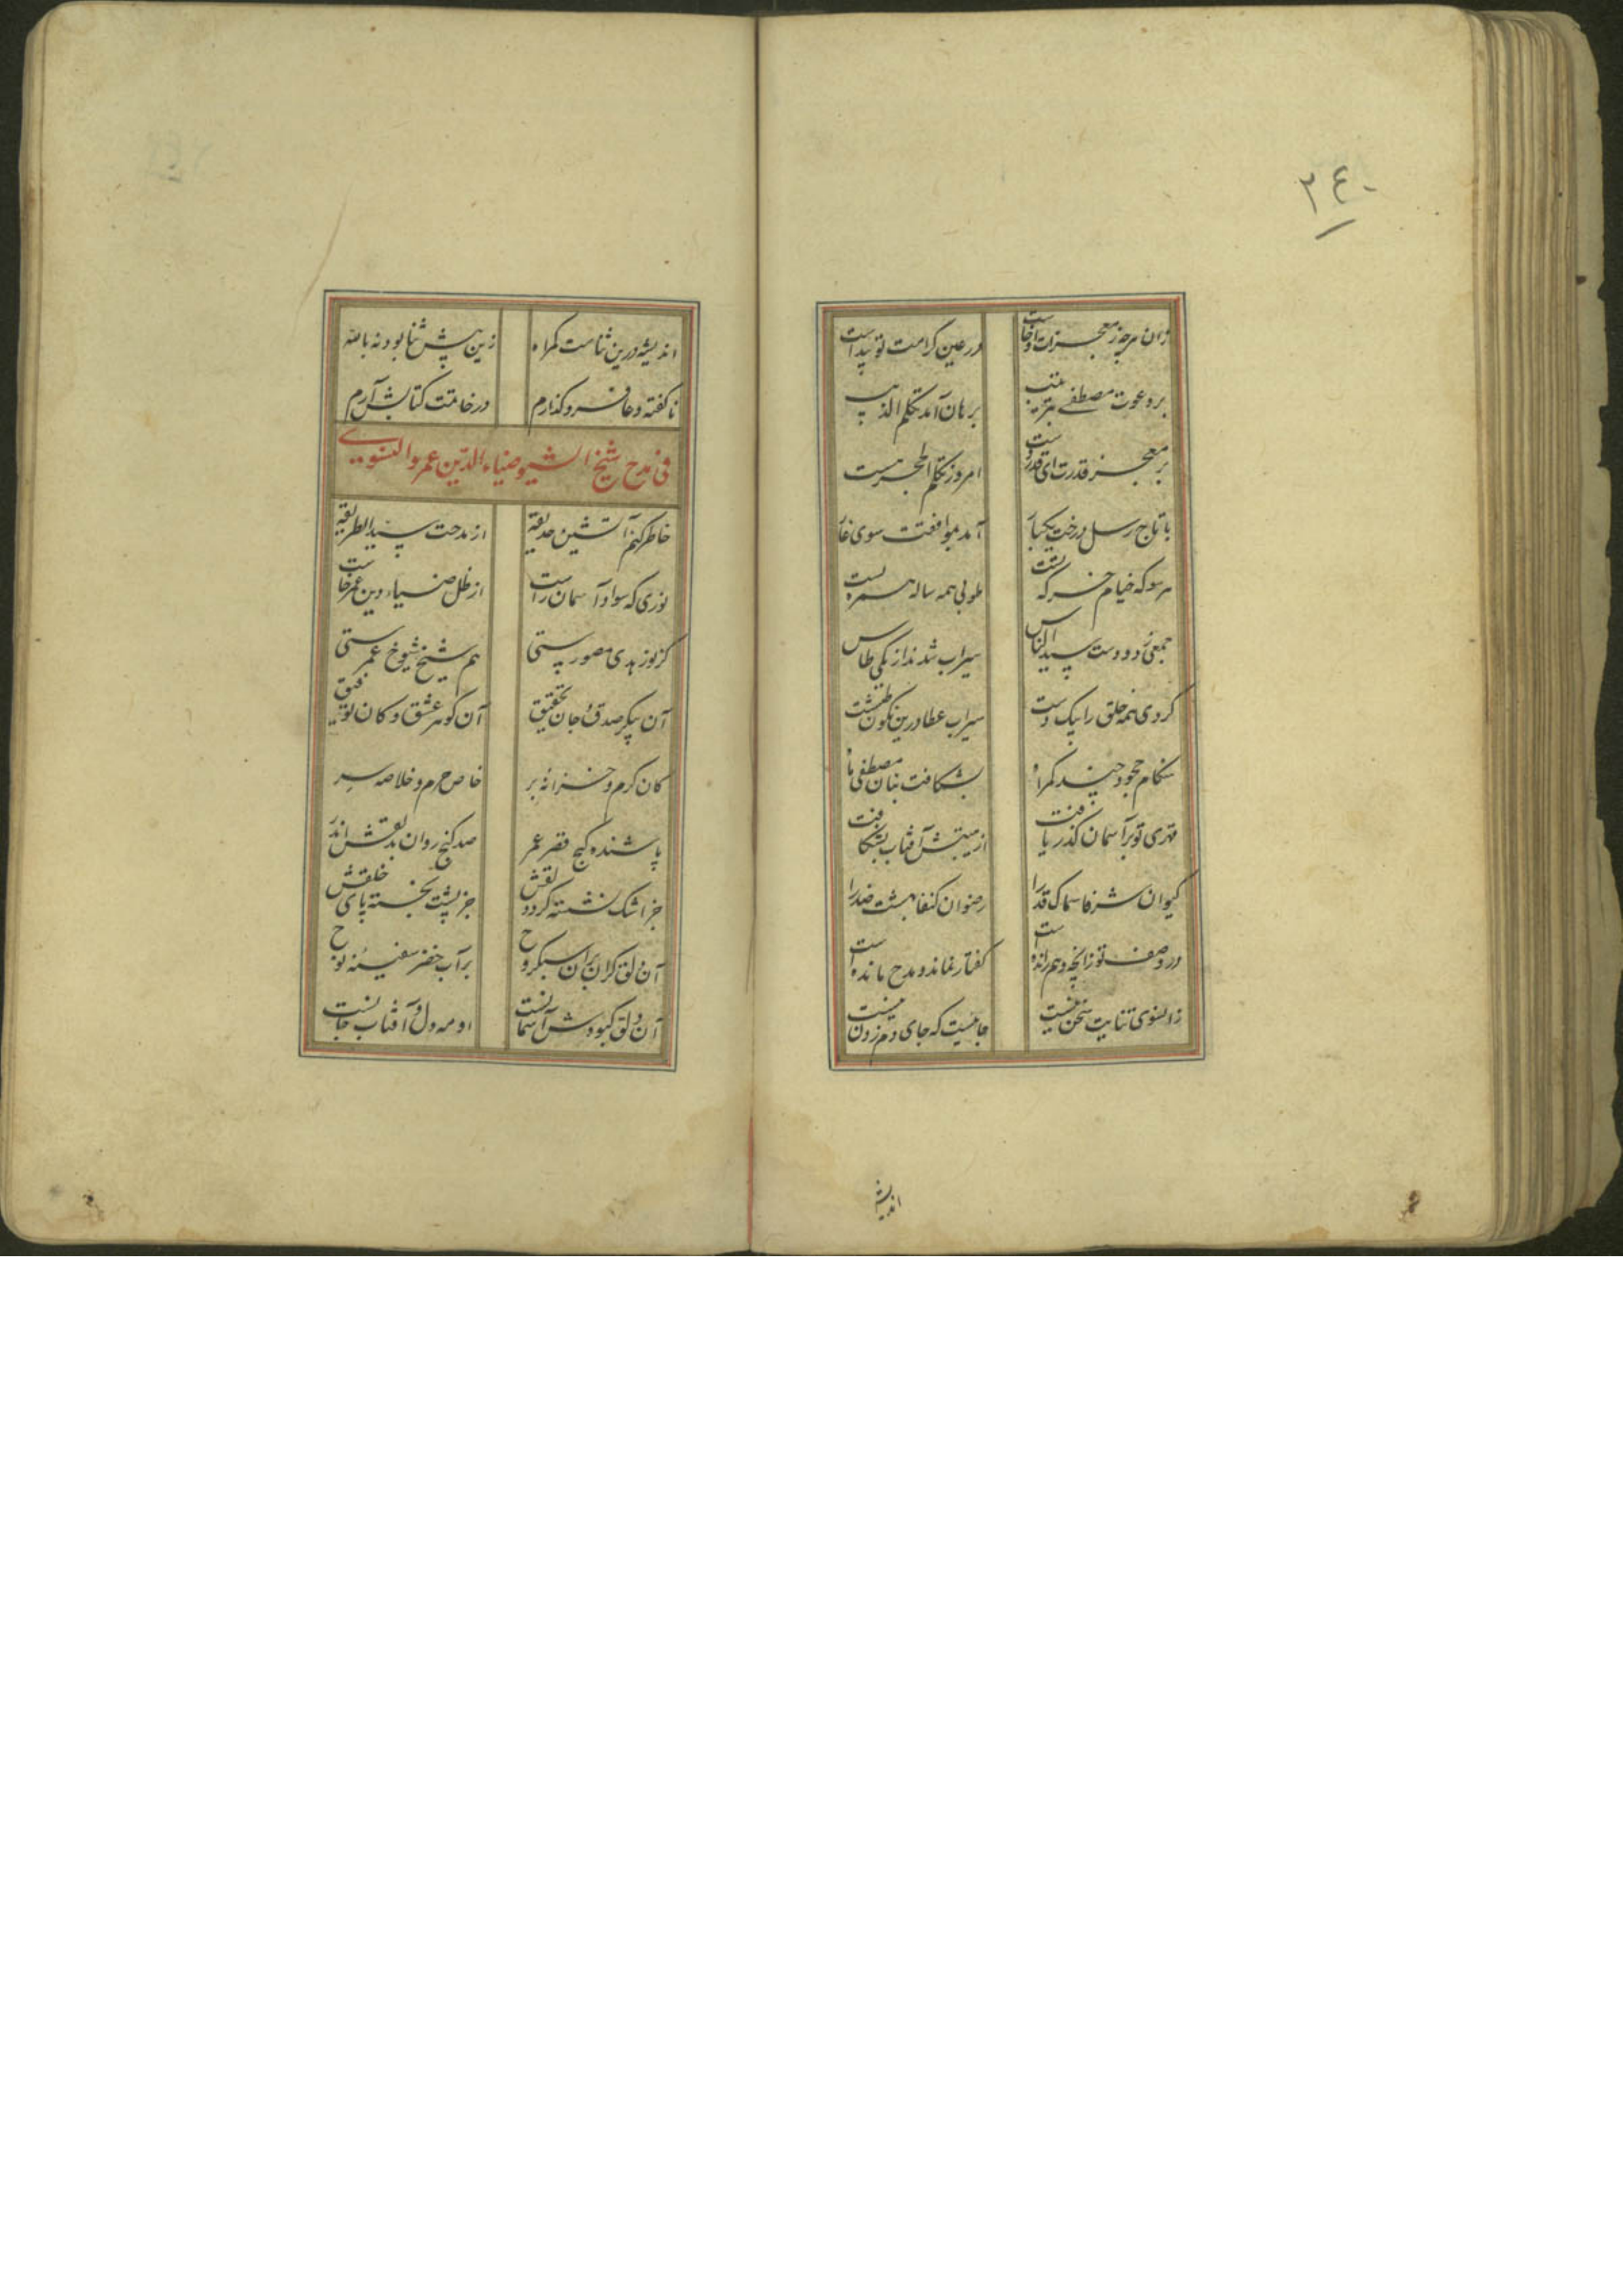 ٢٤٠
وان هرچه ز معجزات او خاست در عین کرامت تو پیداست
بر دعوت مصطفی برهان آمد تکلم الذیب
بر معجز قدرت ای قدر دست امروز تکلم الحجر هست
با تاج رسل درخت یکبار آمد بموافقت سوی غار
هر سو که خیام خرگه تست طوبی همه ساله همره تست
جمعی ز دو دست سید الناس سیراب شدند از یکی طاس
کردی همه خلق را بیک دست سیراب عطا درین نگون طشت
هنکام جحود چند کمراه بشکافت بنان مصطفی ماه
قدری تو بر آسمان گذر یافت از هیبتش آفتاب بشکافت
کیوان شرفا سماک قدرا رضوان کنفا بهشت صدرا
در وصف تو زانچه وهم رانده است کفتار نماند و مدح مانده است
زانسوی ثنایت سخن نیست جاییست که جای دم زدن نیست
اندیشه
اندیشه درین ثناست کمراه زین پیش ثنا بود نه بالله
ناکفته دعا فرو کذارم در خاتمت کتابش آرم
فی مدح شیخ الشیوخ ضیاء الدین عمر والنسوی
خاطر کنم آتشین حدیقه از مدحت سید الطریقه
نوری که سواد آسمان راست از ظل ضیاء دین عمر خاست
کز نور هدی مصور هستی هم شیخ شیوخ عمرستی
آن پیکر صدق و جان تحقیق آن کوهر عشق و کان توفیق
کان کرم و خزانه بر خاص حرم و خلاصه سر
پاشنده کنج فقر عمر صد کنج روان بدلقش اندر
جز اشک نشسته کرد دلقش جز پشت نخسته پای خلقش
آن دلق کران بران سبکروح بر آب خضر سفینه نوح
آن دلق کبودش آسمانست او مه دل و آفتاب جانست